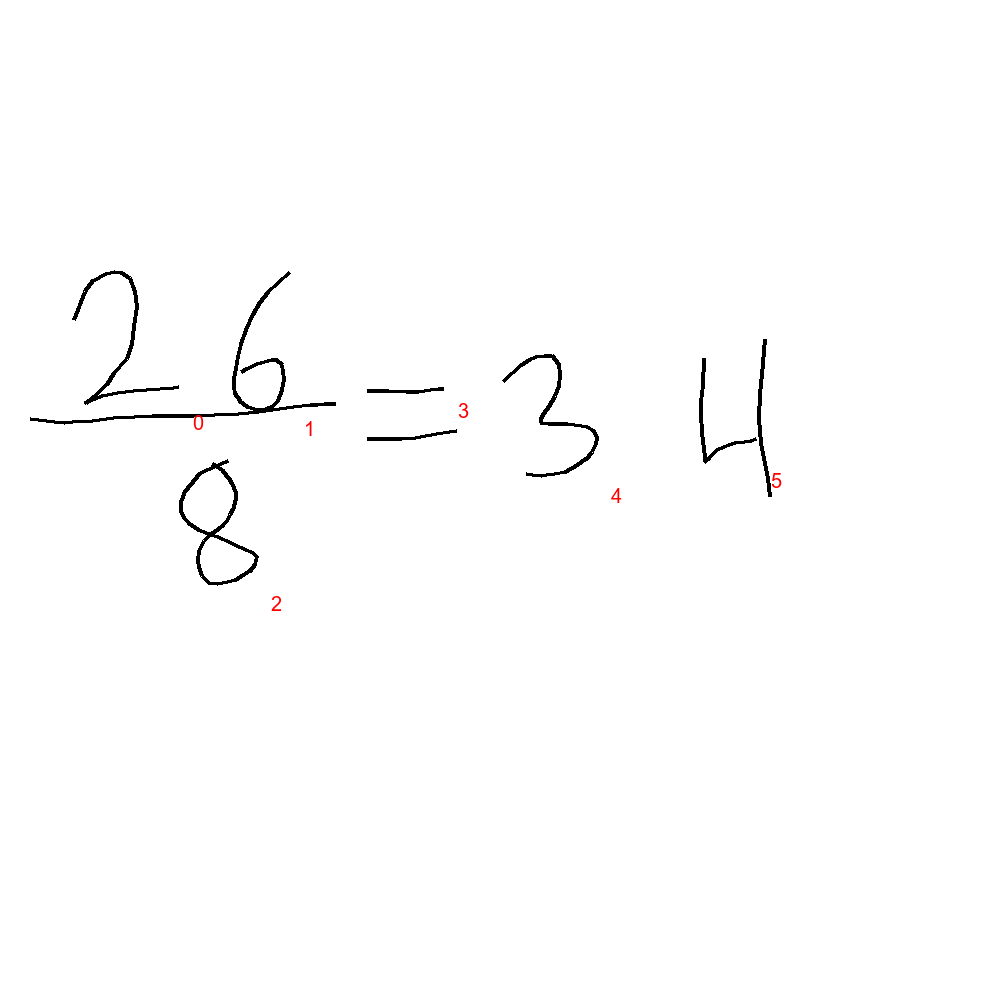 26
8
= 3 4
0
1
2
3
4
5